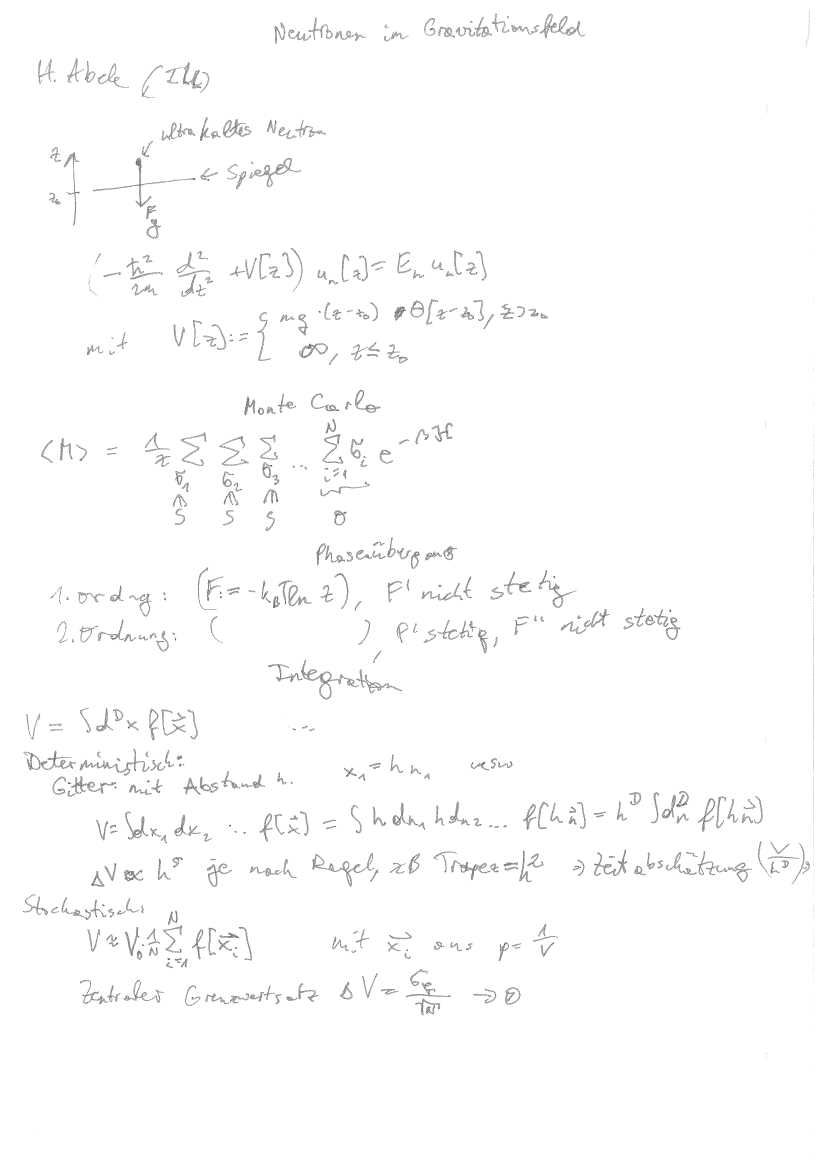 Neutronen im Gravitationsfeld
H. Abele (ILL)
ultrakaltes Neutron
z
← Spiegel
z₀
F
g
(-ħ²/2m d²/dz² + V[z]) uₙ[z] = Eₙ uₙ[z]
mit V[z] := { mg·(z-z₀) · Θ[z-z₀], z>z₀
∞, z≤z₀
Monte Carlo
<M> = 1/z Σ Σ Σ ... Σ σᵢ e^(-βH)
σ₁ σ₂ σ₃ i=1 N
S S S
Phasenübergang
1. Ordng: (F := -k_B T ln z), F' nicht stetig
2. Ordnung: ( ), F' stetig, F'' nicht stetig
Integration
V = ∫d^D x f[x⃗] ...
Deterministisch:
Gitter: mit Abstand h. x₁ = h n₁ usw
V = ∫dx₁ dx₂ ... f[x⃗] = ∫ h dn₁ h dn₂ ... f[h n⃗] = h^D ∫d^D n f[h n⃗]
ΔV ∝ h^g je nach Regel, zB Trapez = h² ⇒ Zeitabschätzung (V/h^D),
Stochastisch:
V ≈ V₀ · 1/N Σ_{i=1}^N f[x⃗ᵢ] mit x⃗ᵢ aus p = 1/V
Zentraler Grenzwertsatz ΔV = σ_f/√N → 0